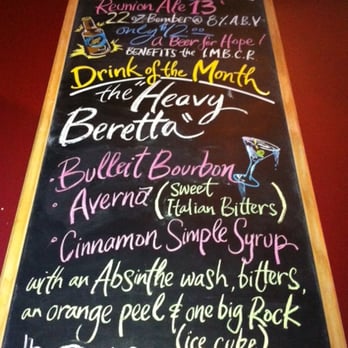 Reunion Ale 13
22 oz Bomber @ 8% A.B.V
only
a Beer for Hope!
BENEFITS the I.M.B.C.R
Drink of the Month
the "Heavy
Beretta"
· Bulleit Bourbon
· Averna (Sweet
Italian Bitters)
· Cinnamon Simple Syrup
with an Absinthe wash, bitters,
an orange peel & one big Rock
(ice cube)